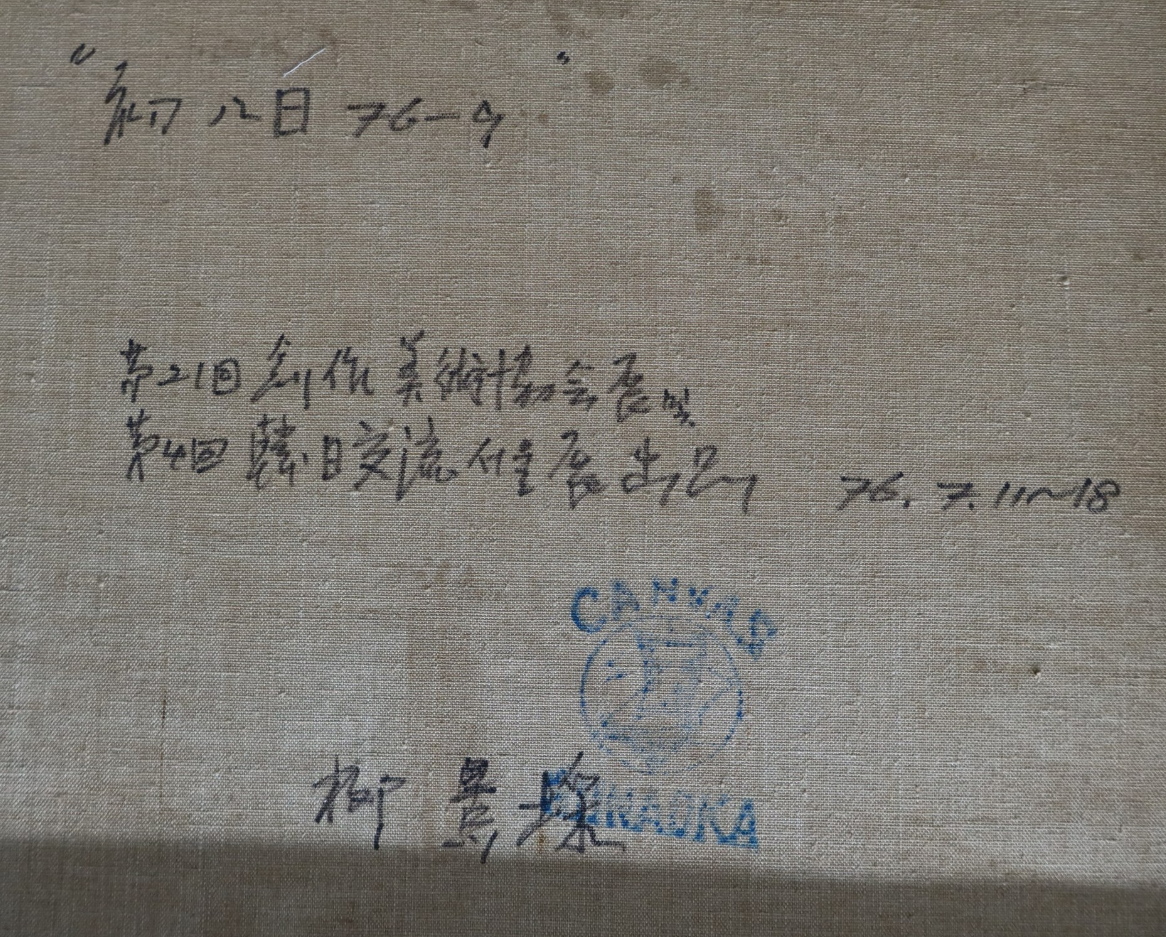 "初八日 76-9"
第21回 創作美術協会展 및
第4回 韓日交流 서울展 出品 76. 7. 11~18
CANVAS
FUNAOKA
柳 景 埰